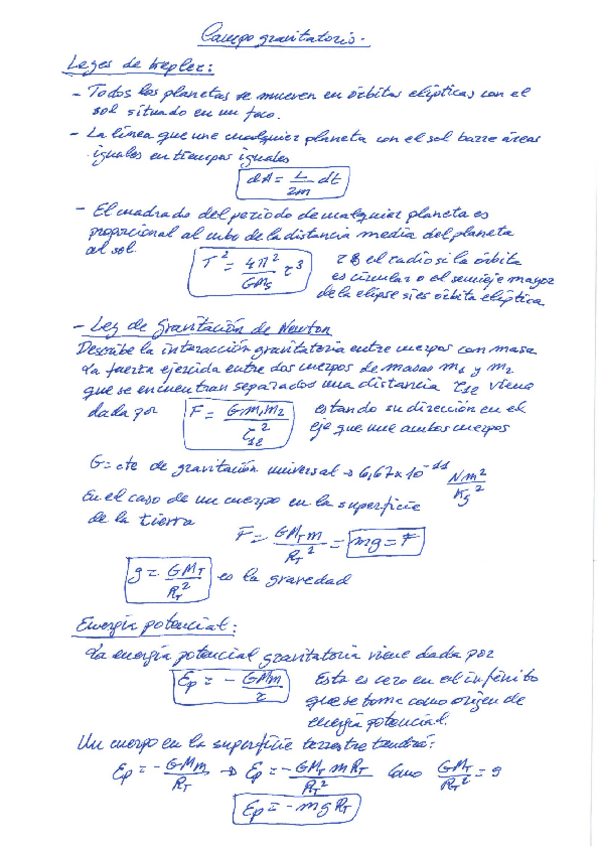 Campo gravitatorio.
Leyes de Kepler:
- Todos los planetas se mueven en órbitas elípticas con el
sol situado en un foco.
- La línea que une cualquier planeta con el sol barre áreas
iguales en tiempos iguales
dA = L/2m dt
- El cuadrado del periodo de cualquier planeta es
proporcional al cubo de la distancia media del planeta
al sol.
T² = 4π²/GMs r³
r es el radio si la órbita
es circular o el semieje mayor
de la elipse si es órbita elíptica
- Ley de Gravitación de Newton
Describe la interacción gravitatoria entre cuerpos con masa
La fuerza ejercida entre dos cuerpos de masas m1 y m2
que se encuentran separados una distancia r12 viene
dada por F = Gm1m2/r12² estando su dirección en el
eje que une ambos cuerpos
G = cte de gravitación universal → 6,67x10⁻¹¹ Nm²/Kg²
En el caso de un cuerpo en la superficie
de la tierra
F = GMTm/RT² = mg = F
g = GMT/RT² es la gravedad
Energía potencial:
La energía potencial gravitatoria viene dada por
Ep = - GMm/r Esta es cero en el infinito
que se toma como origen de
energía potencial.
Un cuerpo en la superficie terrestre tendrá:
Ep = - GMm/RT → Ep = - GMT mRT/RT² Como GMT/RT² = g
Ep = - mgRT